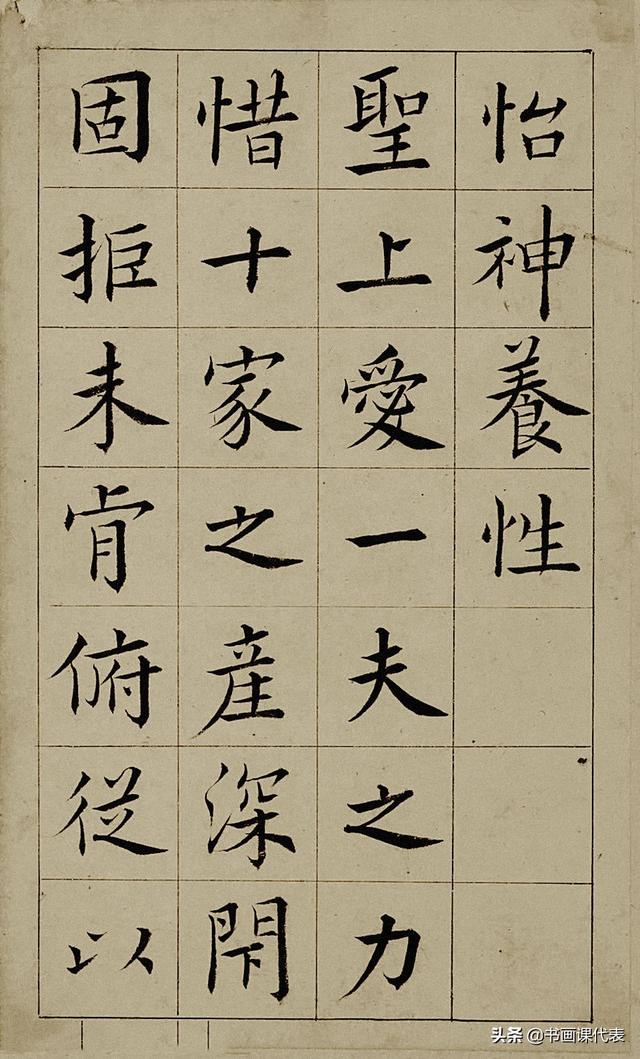 怡神養性
聖上愛一夫之力
惜十家之産深閇
固拒未肯俯従以
头条 @书画课代表